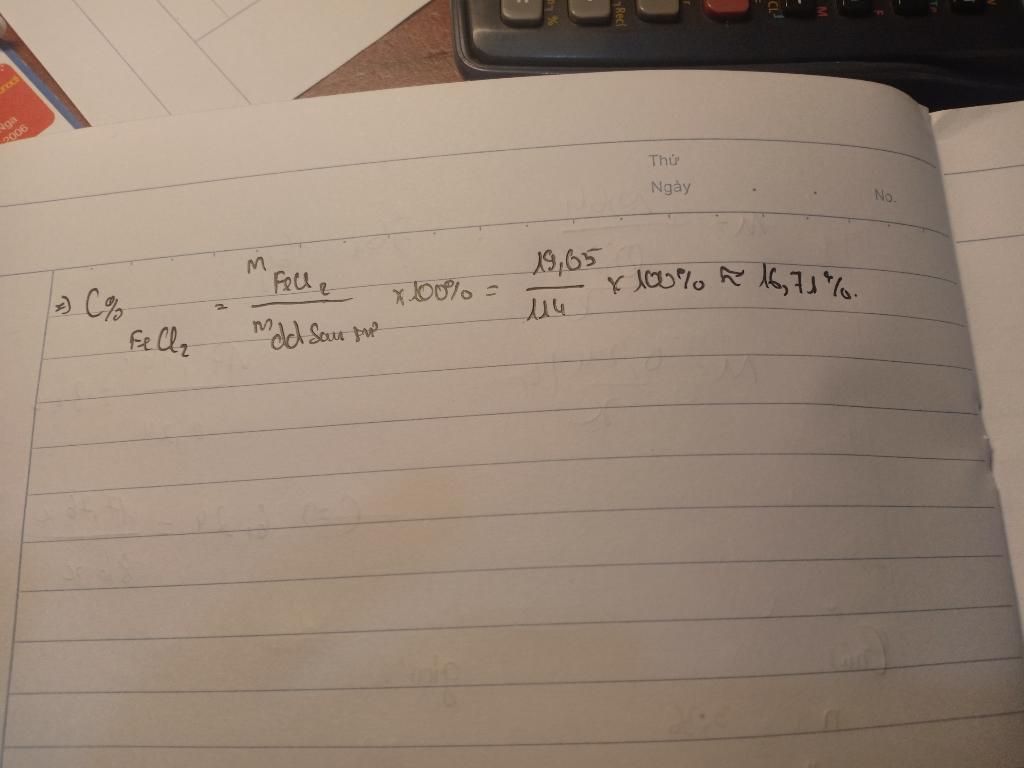 Nga
2006
Thứ
Ngày
No.
=) C% FeCl₂ = m FeCl₂ / m dd sau pứ × 100% = 19,05 / 114 × 100% ≈ 16,71%.